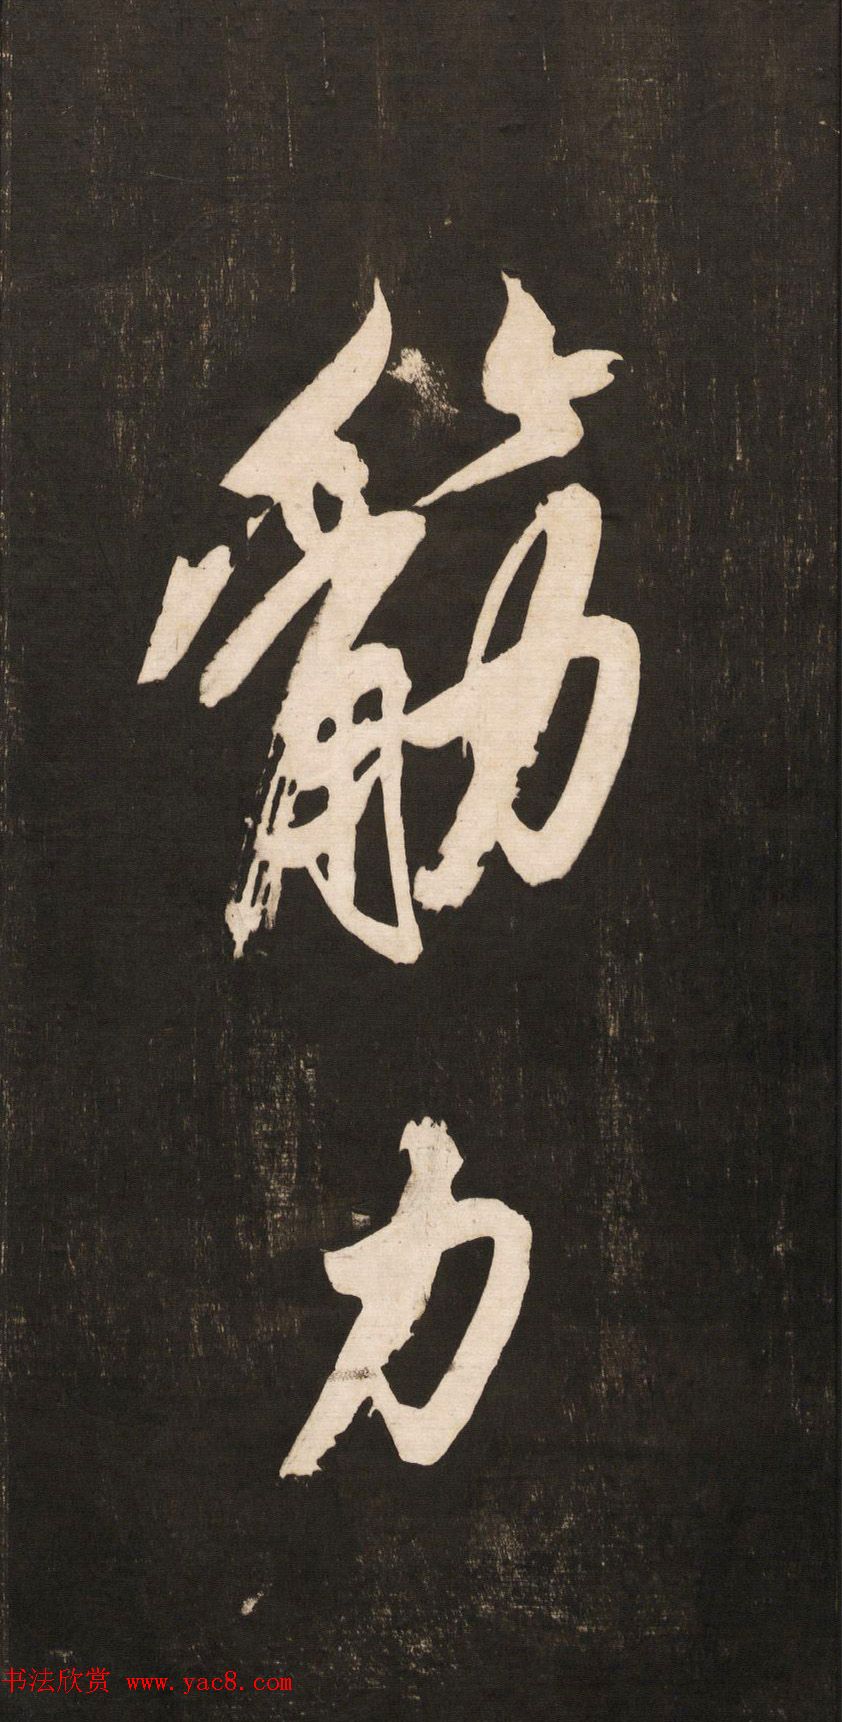 筋
力
书法欣赏 www.yac8.com